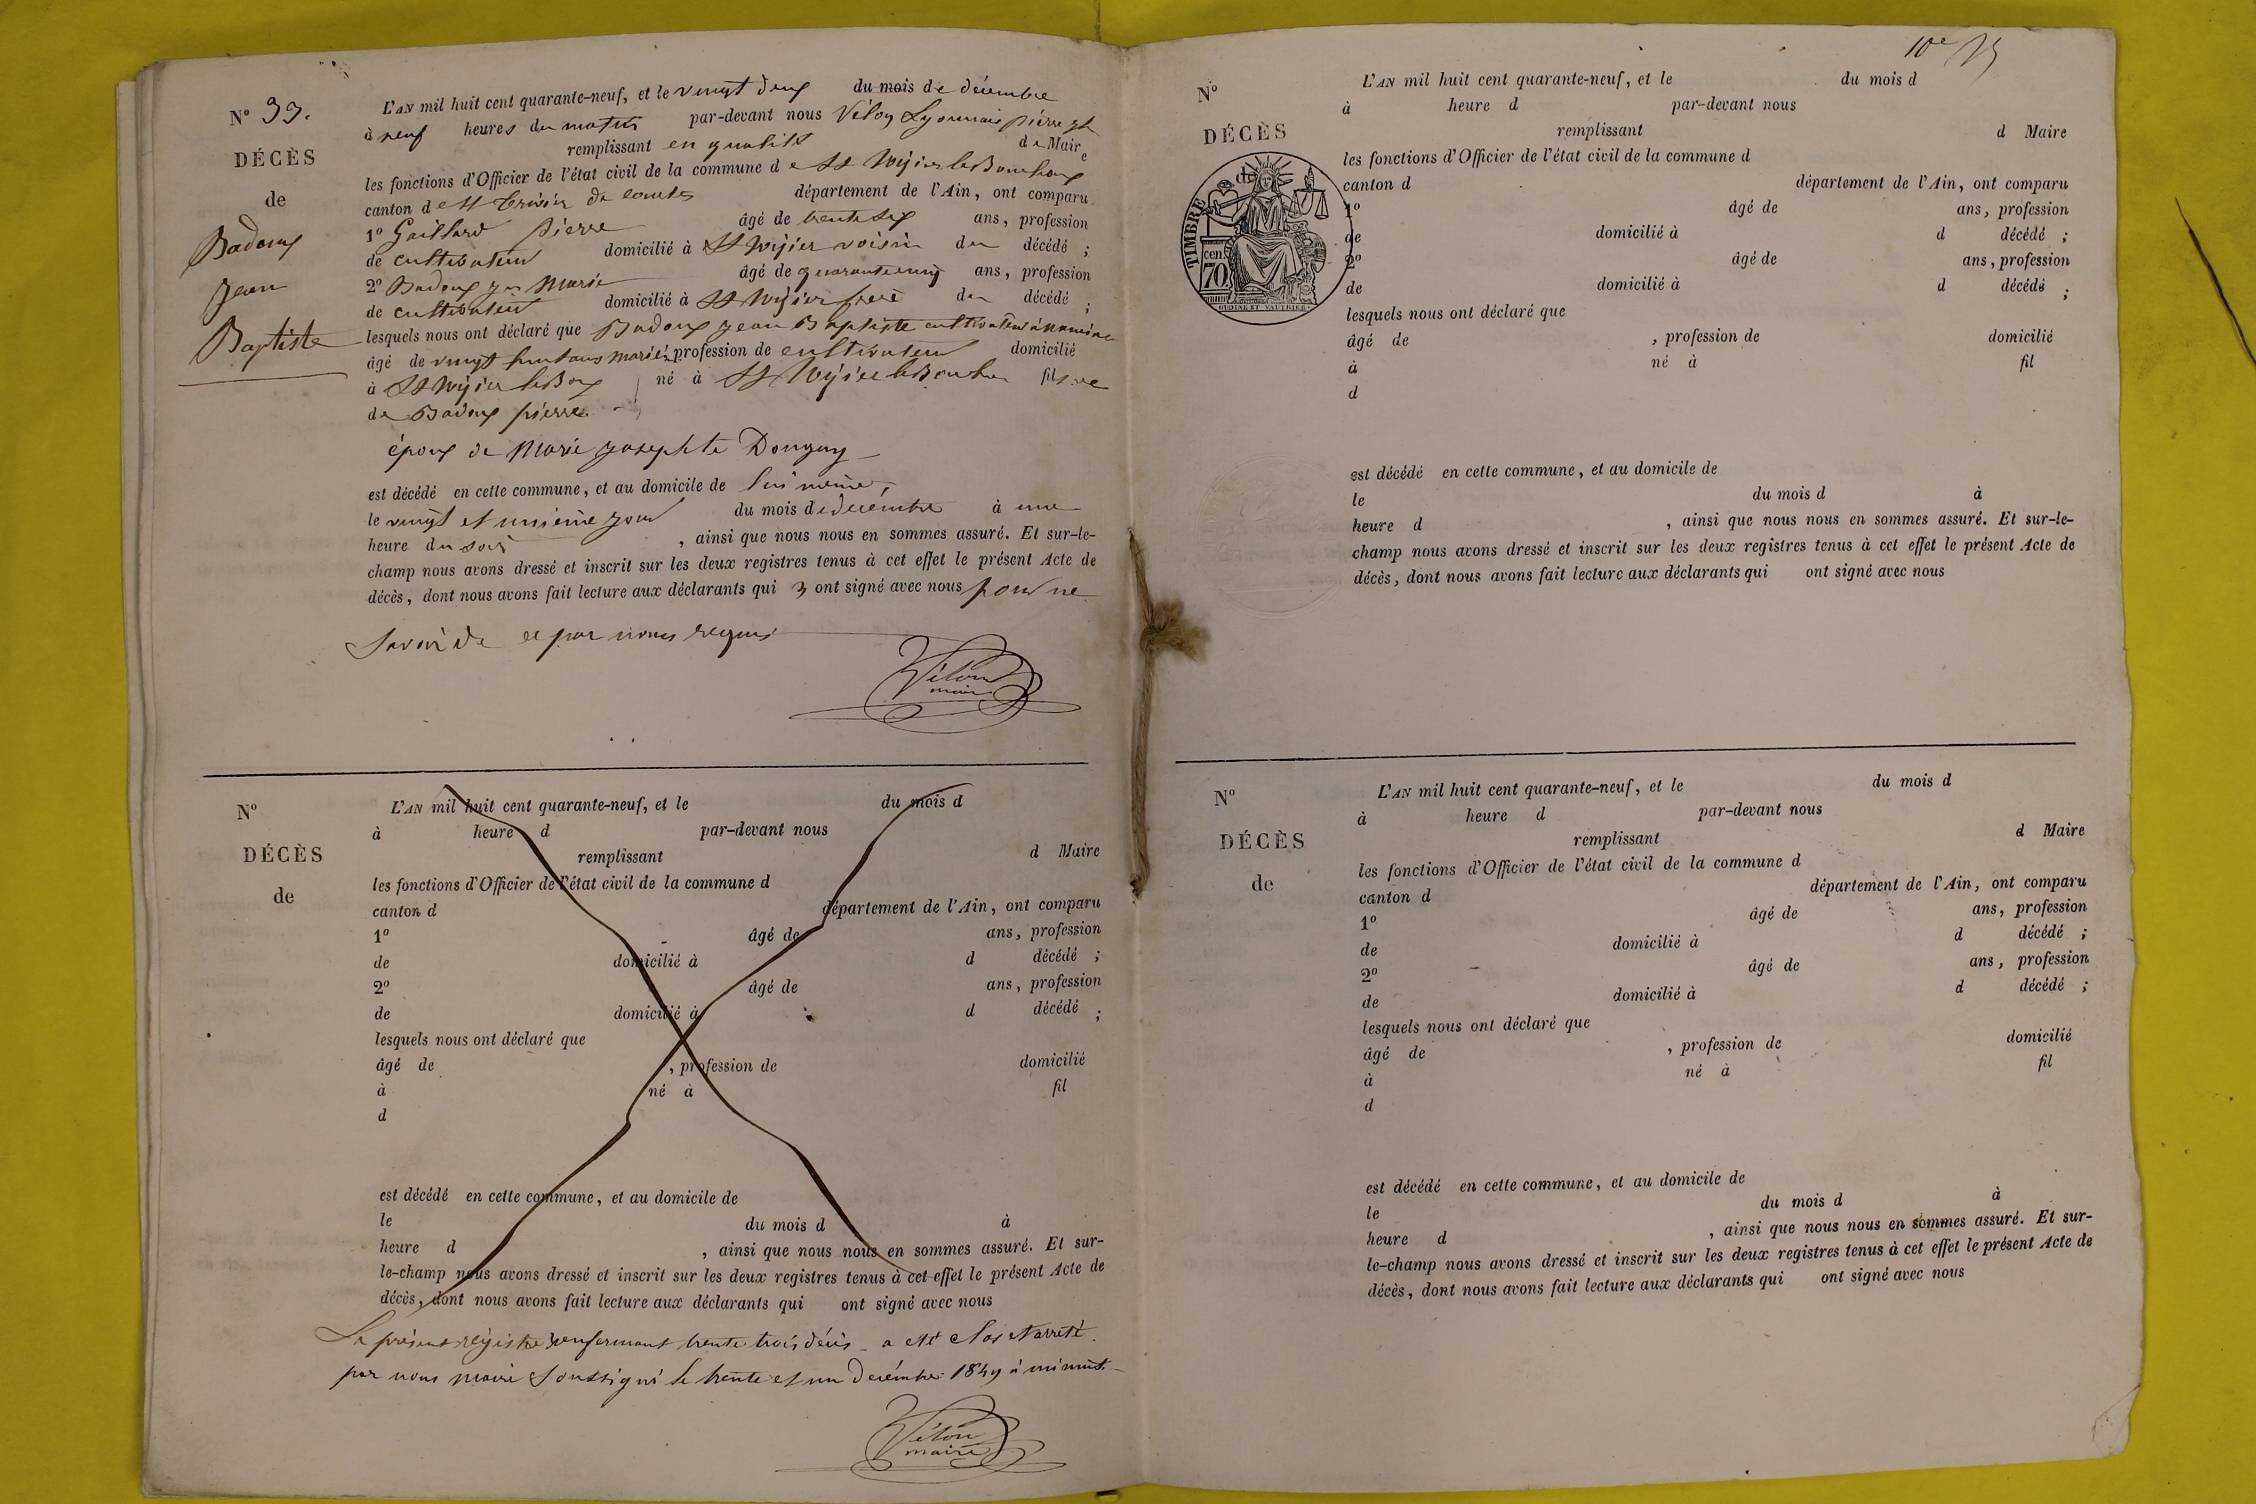 N° 33.
DÉCÈS
de
Badoux
Jean
Baptiste
L'AN mil huit cent quarante-neuf, et le vingt deux du mois de décembre
à neuf heures du matin par-devant nous Vélon Lyonnais pierre
remplissant en qualité de Maire
les fonctions d'Officier de l'état civil de la commune de St Nizier le Bouchoux
canton de St Trivier de courtes département de l'Ain, ont comparu
1° Gaillard Pierre âgé de trente six ans, profession
de cultivateur domicilié à St Nizier voisin du décédé ;
2° Badoux jn Marie âgé de quarante cinq ans, profession
de cultivateur domicilié à St Nizier frere du décédé ;
lesquels nous ont déclaré que Badoux jean Baptiste cultivateur
âgé de vingt huit ans marié profession de cultivateur domicilié
à St Nizier le Boux né à St Nizier le Bouchoux fils
de Badoux pierre
époux de Marie josephte Donguy
est décédé en cette commune, et au domicile de lui même,
le vingt et unième jour du mois de décembre à une
heure du soir , ainsi que nous nous en sommes assuré. Et sur-le-
champ nous avons dressé et inscrit sur les deux registres tenus à cet effet le présent Acte de
décès, dont nous avons fait lecture aux déclarants qui n ont signé avec nous pour ne
savoir de ce par nous requis
Vélon
maire
N°
DÉCÈS
de
L'AN mil huit cent quarante-neuf, et le du mois d
à heure d par-devant nous
remplissant d Maire
les fonctions d'Officier de l'état civil de la commune d
canton d département de l'Ain, ont comparu
1° âgé de ans, profession
de domicilié à d décédé ;
2° âgé de ans, profession
de domicilié à d décédé ;
lesquels nous ont déclaré que
âgé de , profession de domicilié
à né à fil
d
est décédé en cette commune, et au domicile de
le du mois d à
heure d , ainsi que nous nous en sommes assuré. Et sur-
le-champ nous avons dressé et inscrit sur les deux registres tenus à cet effet le présent Acte de
décès, dont nous avons fait lecture aux déclarants qui ont signé avec nous
Le présent régistre renfermant trente trois décès a été clos et arrêté
par nous maire soussigné le trente et un décembre 1849 à minuit
Vélon
maire
10e
N°
DÉCÈS
de
TIMBRE
70 cen.
OUDINÉ ET VAUTRIER
L'AN mil huit cent quarante-neuf, et le du mois d
à heure d par-devant nous
remplissant d Maire
les fonctions d'Officier de l'état civil de la commune d
canton d département de l'Ain, ont comparu
1° âgé de ans, profession
de domicilié à d décédé ;
2° âgé de ans, profession
de domicilié à d décédé ;
lesquels nous ont déclaré que
âgé de , profession de domicilié
à né à fil
d
est décédé en cette commune, et au domicile de
le du mois d à
heure d , ainsi que nous nous en sommes assuré. Et sur-le-
champ nous avons dressé et inscrit sur les deux registres tenus à cet effet le présent Acte de
décès, dont nous avons fait lecture aux déclarants qui ont signé avec nous
N°
DÉCÈS
de
L'AN mil huit cent quarante-neuf, et le du mois d
à heure d par-devant nous
remplissant d Maire
les fonctions d'Officier de l'état civil de la commune d
canton d département de l'Ain, ont comparu
1° âgé de ans, profession
de domicilié à d décédé ;
2° âgé de ans, profession
de domicilié à d décédé ;
lesquels nous ont déclaré que
âgé de , profession de domicilié
à né à fil
d
est décédé en cette commune, et au domicile de
le du mois d à
heure d , ainsi que nous nous en sommes assuré. Et sur-
le-champ nous avons dressé et inscrit sur les deux registres tenus à cet effet le présent Acte de
décès, dont nous avons fait lecture aux déclarants qui ont signé avec nous